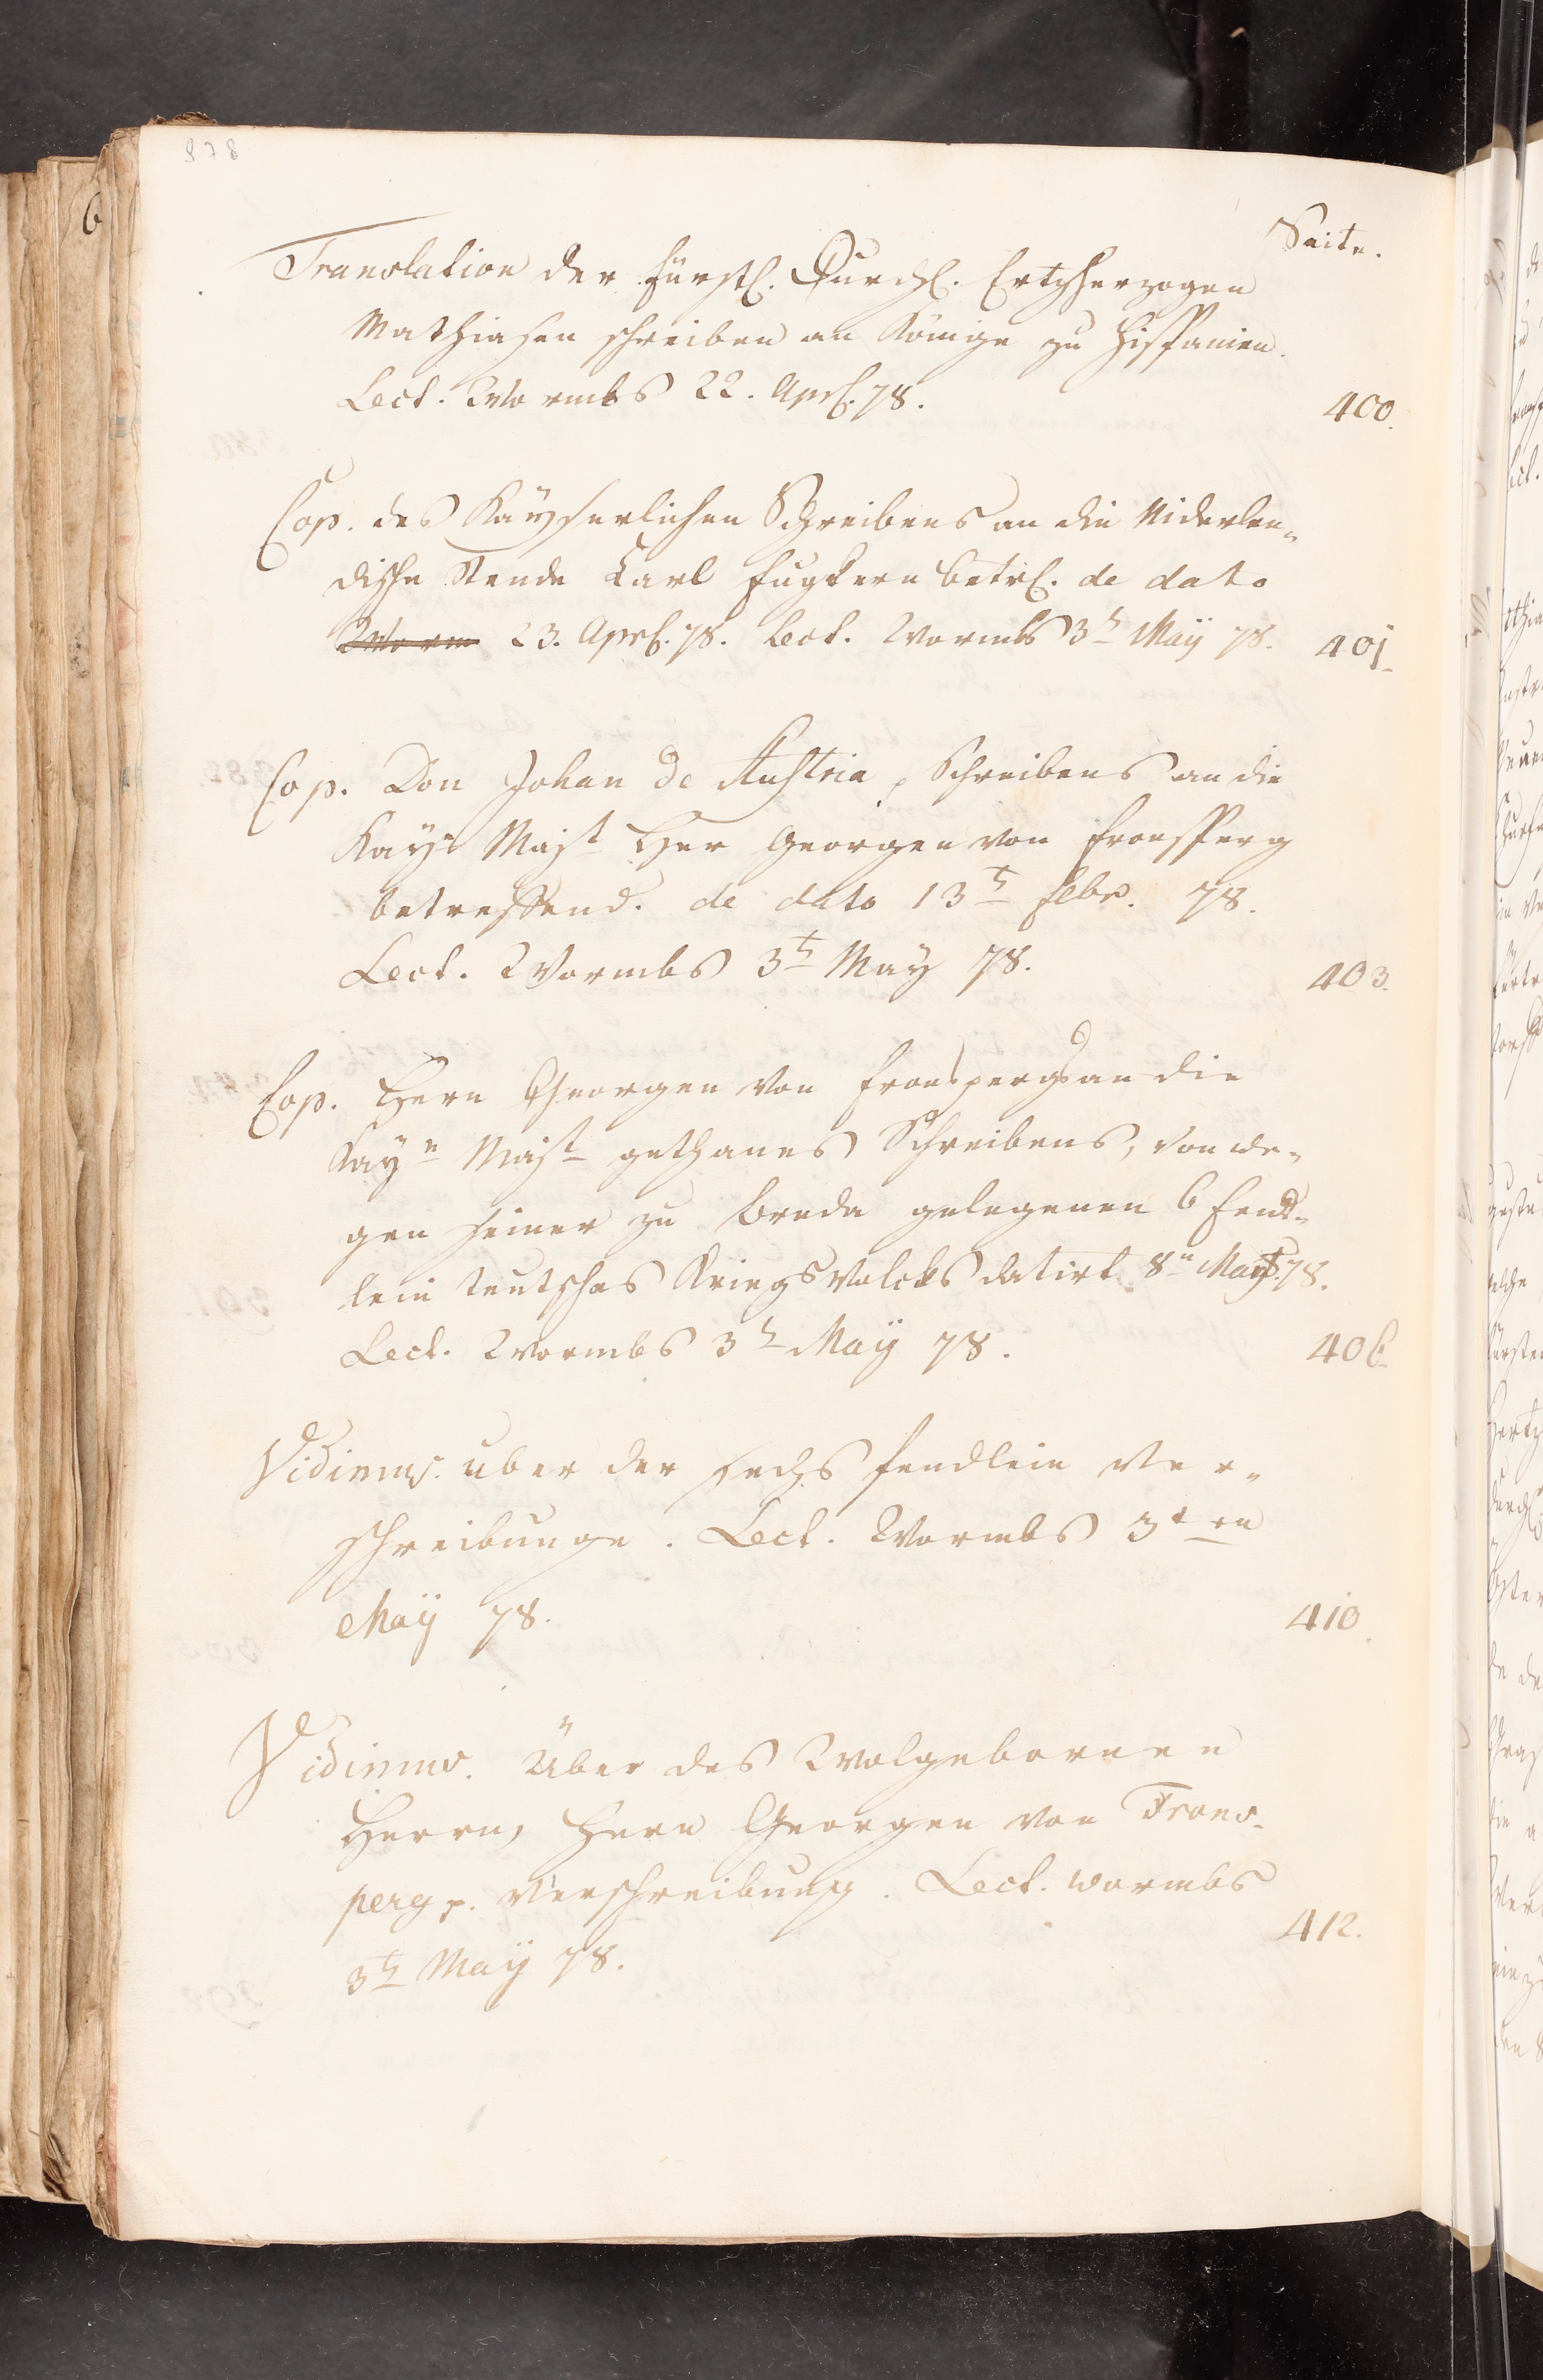 978
Seite.
Translation der fürstl. Durchl. Ertzherzogen
Mathiasen schreiben an Könige zu Hispanien.
Lect. Wormbs 22. Aprl. 78. 400.
Cop. des Kayserlichen Schreibens an die Niderlen-
dische Stende Carl Fugkern betrl. de dato
Worm 23. Aprl. 78. Lect. Wormbs 3t Maÿ 78. 401
Cop. Don Johan de Austria, Schreibens an die
Kays Majt Her Georgen von Fronsperg
betreffend. de dato 13t Febr. 78.
Lect. Wormbs 3t May 78. 403.
Cop. Hern Georgen von Fronsperg an die
Kayn Majt gethanes Schreibens, von we-
gen seiner zu Breda gelegenen 6 Fend-
lein teutsches Kriegsvolcks datirt 8n 78.
Lect. Wormbs 3t Maÿ 78. 406.
Vidimus. uber der sechs fendlein Ver-
schreibunge. Lect. Wormbs 3ten
Maÿ 78. 410.
Vidimus. Über des Wolgebornen
Herrn, Hern Georgen von Frons-
perg p. Verschreibung. Lect. wormbs
3t Maÿ 78. 412.